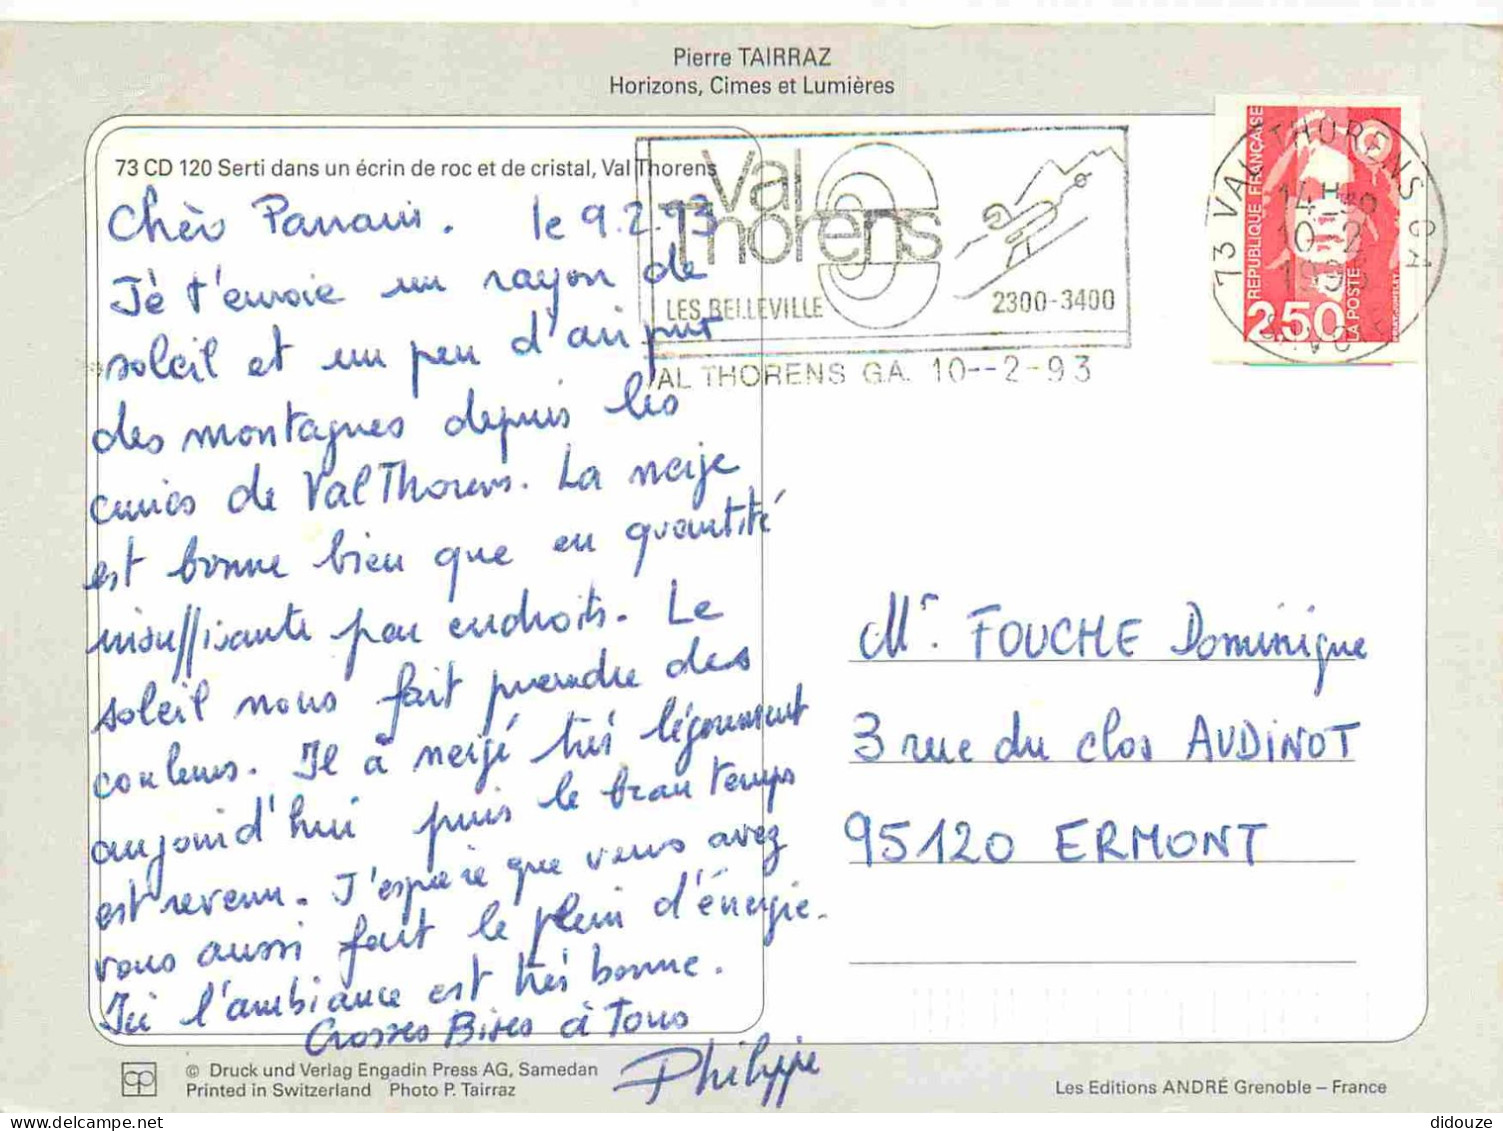 Pierre TAIRRAZ
Horizons, Cimes et Lumières
73 CD 120 Serti dans un écrin de roc et de cristal, Val Thorens
Chèr Parrain. le 9.2.93
Je t'envoie un rayon de
soleil et un peu d'air pur
des montagnes depuis les
cimes de Val Thorens. La neige
est bonne bien que en quantité
insuffisante par endroits. Le
soleil nous fait prendre des
couleurs. Il a neigé très légèrement
aujourd'hui puis le beau temps
est revenu. J'espère que vous avez
vous aussi fait le plein d'énergie.
Ici l'ambiance est très bonne.
Grosses Bises à Tous
Philippe
Val
Thorens
LES BELLEVILLE
2300-3400
VAL THORENS GA. 10--2-93
73 VAL THORENS GA
14H
10-2
1993
SAVOIE
REPUBLIQUE FRANÇAISE
2,50
LA POSTE
Mr. FOUCHE Dominique
3 rue du clos AUDINOT
95120 ERMONT
© Druck und Verlag Engadin Press AG, Samedan
Printed in Switzerland Photo P. Tairraz
Les Editions ANDRÉ Grenoble – France
didouze